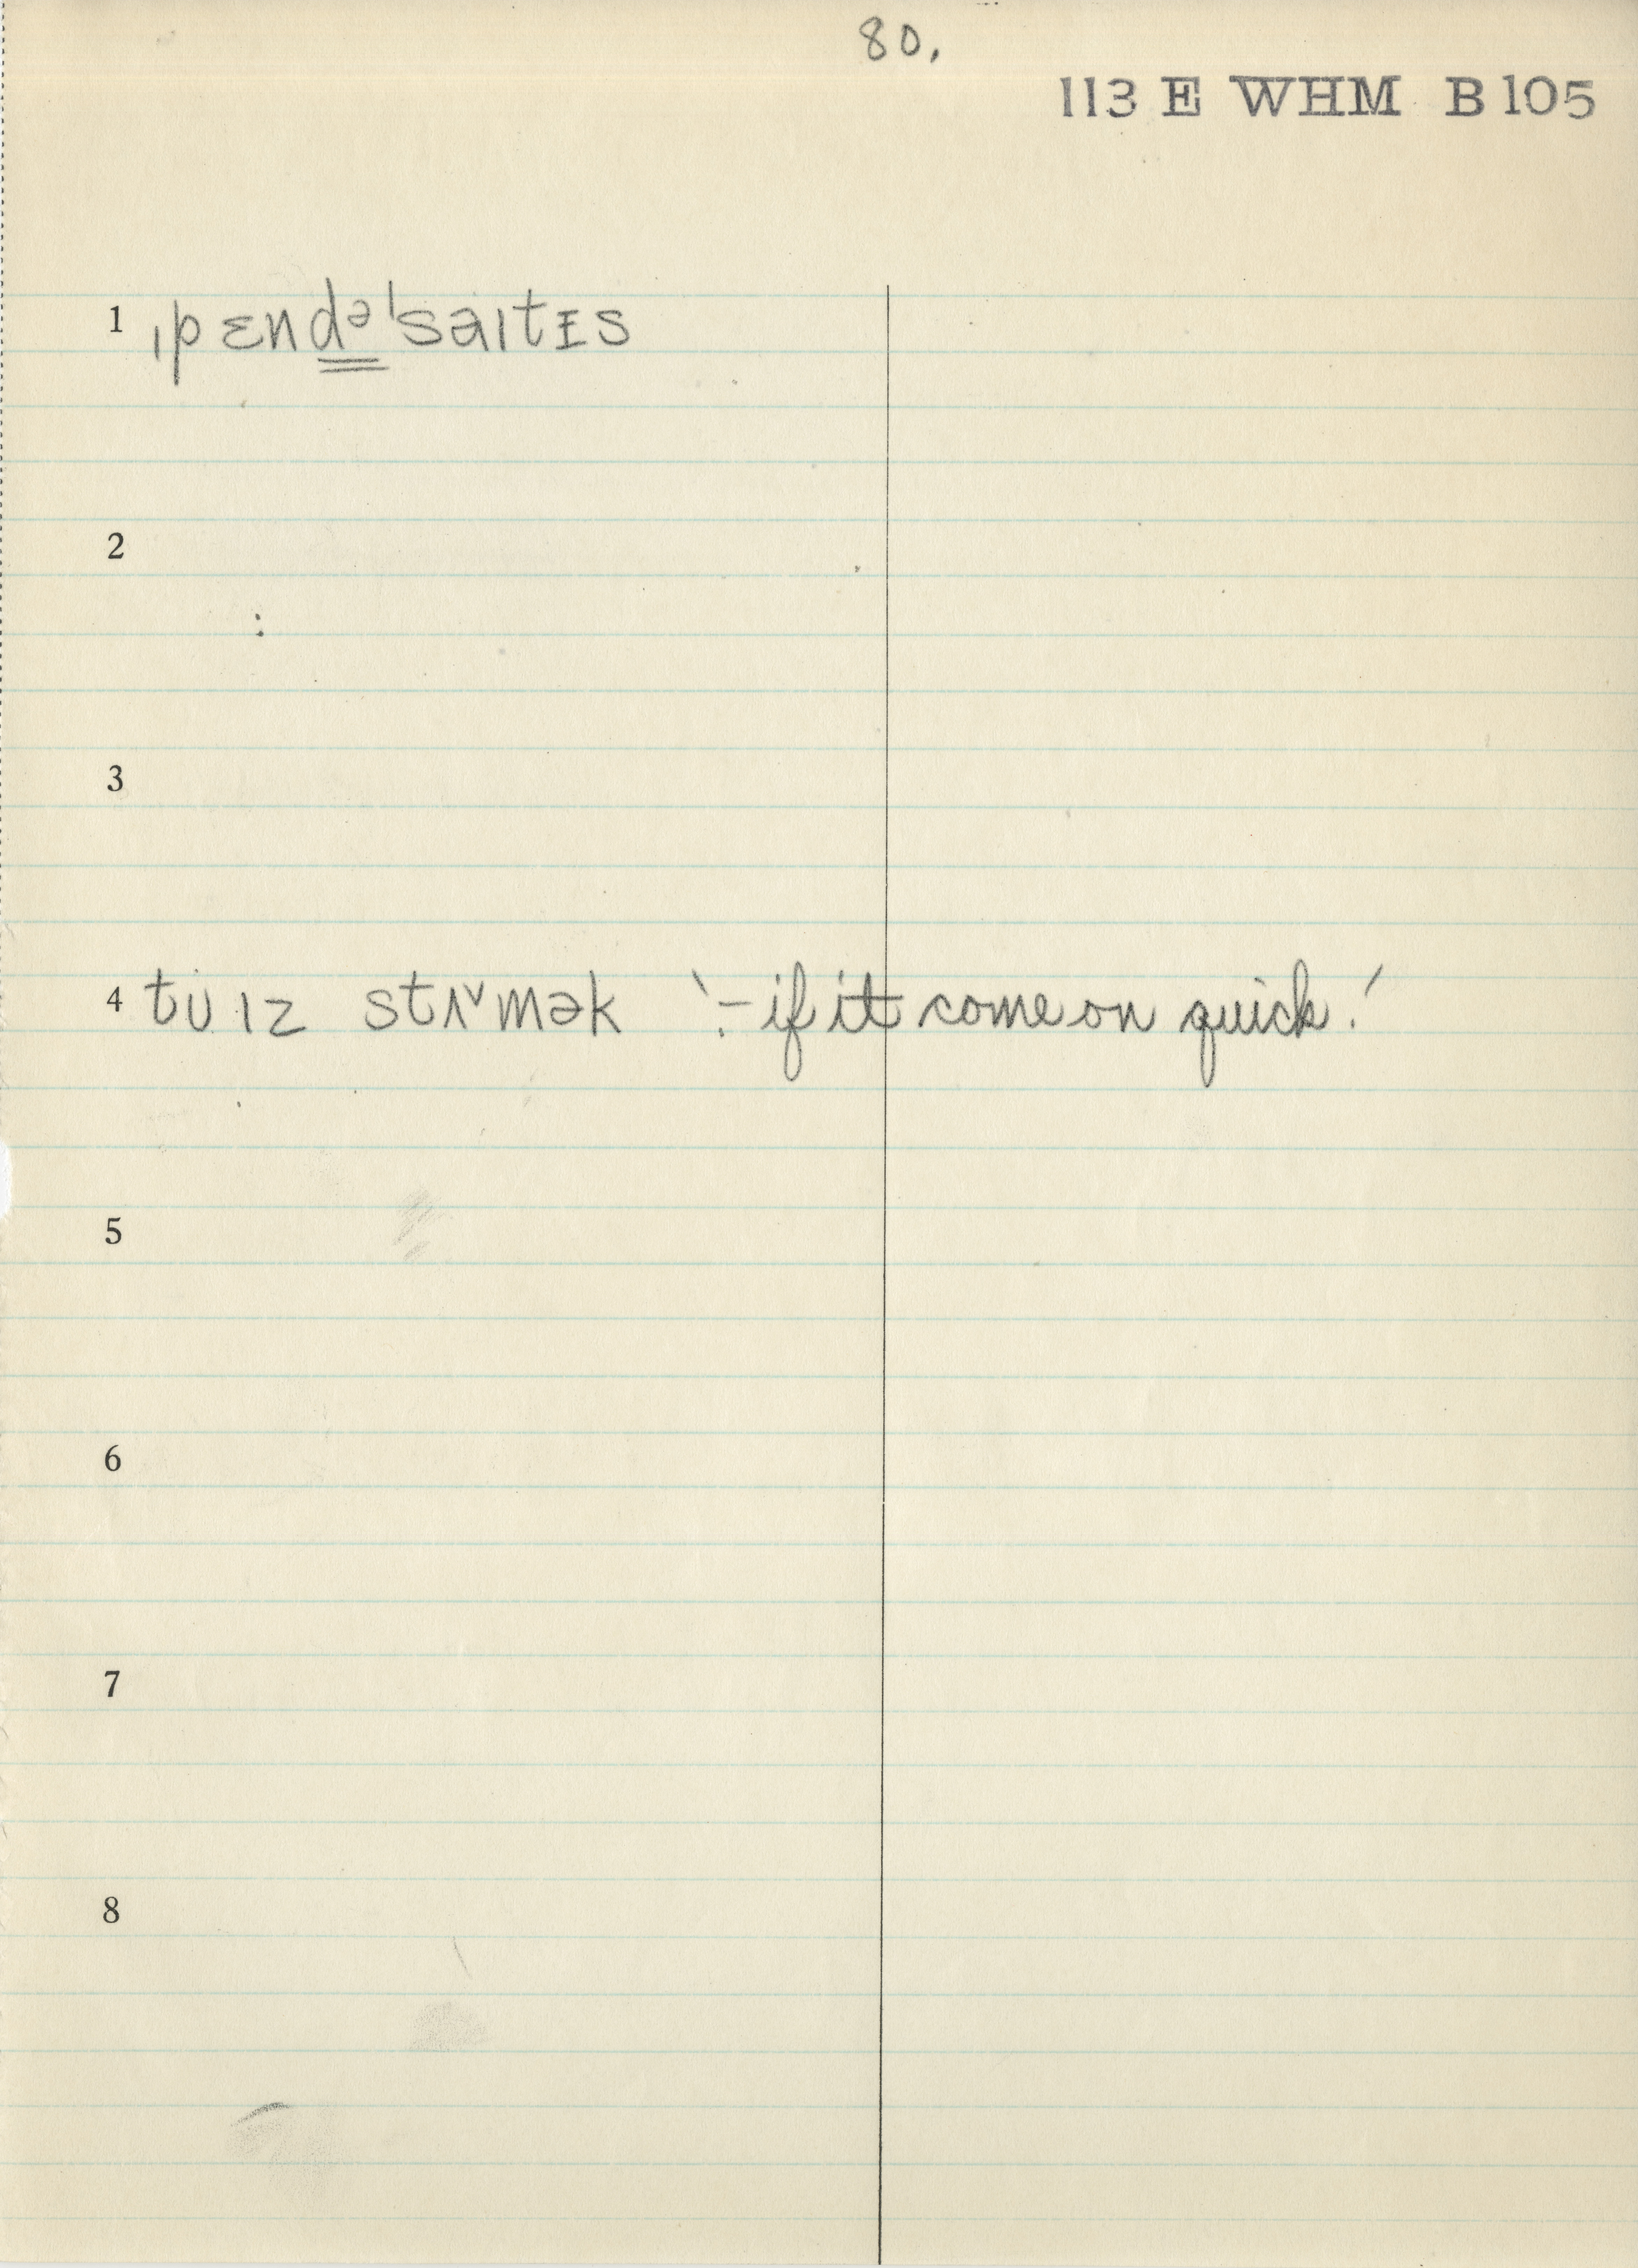 80.
113 E WHM B 105
1 ˌpɛndəˈsaɪtɪs
2
3
4 tʊ ɪz stʌ˅mək ‵:– if it come on quick.′
5
6
7
8